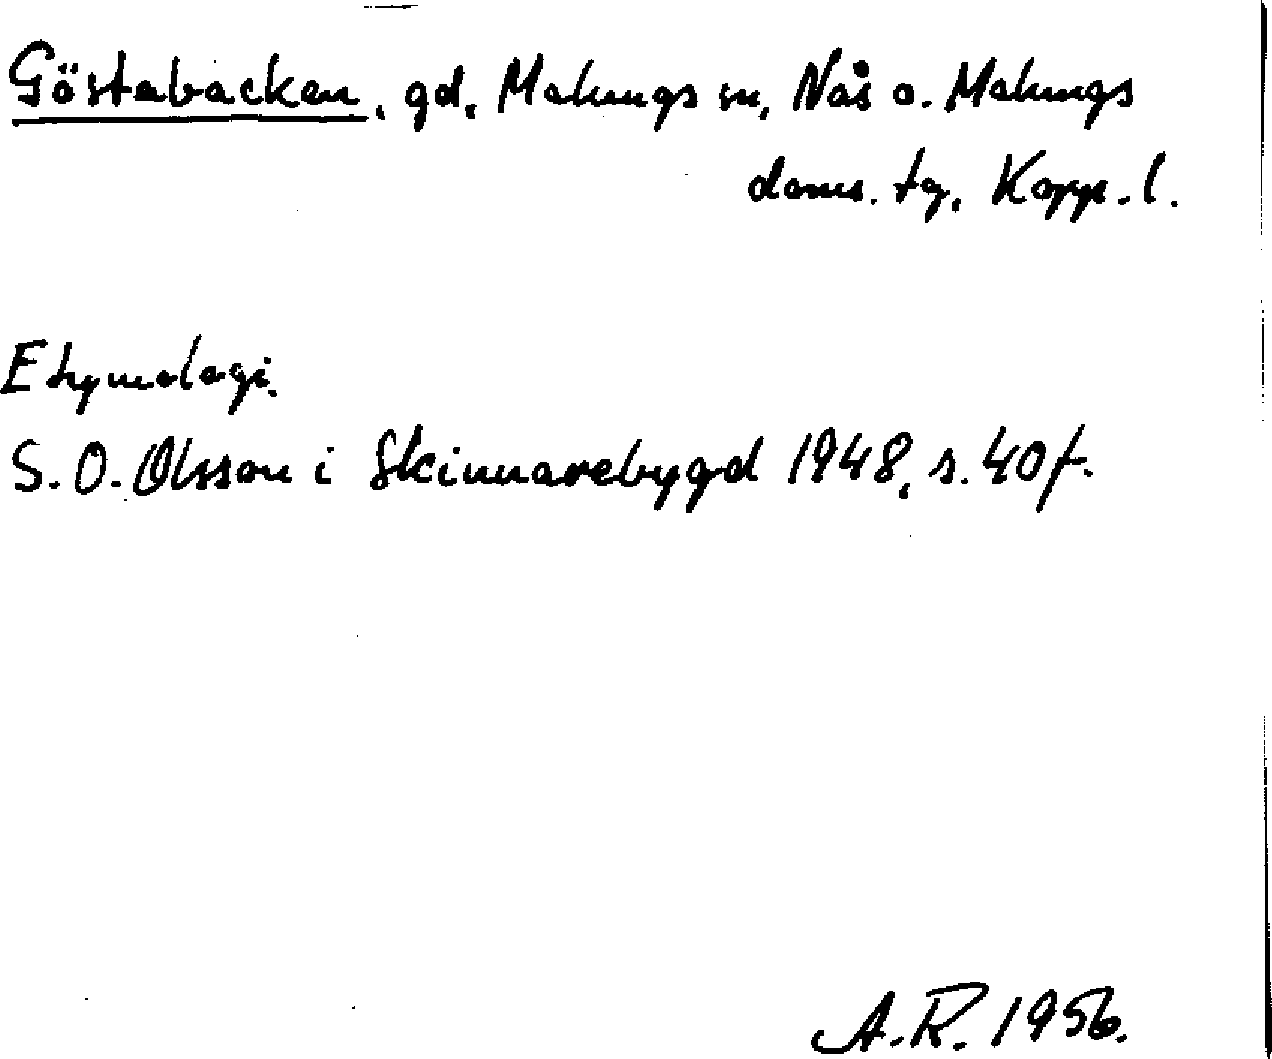 Göstabacken, gd, Malungs sn, Nås o. Malungs
doms. tg, Kopp. l.
Etymologi.
S. O. Olsson i Skinnarebygd 1948, s. 40 f.
A.R. 1956.